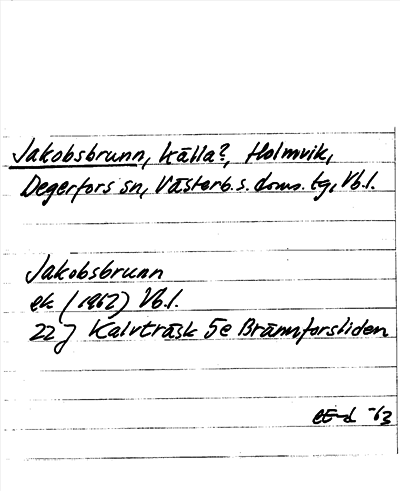 Jakobsbrunn, källa?, Holmvik,
Degerfors sn, Västerb. s. doms. tg, Vb. l.
Jakobsbrunn
ek (1962) Vb. l.
22 J Kalvträsk 5e Brännforsliden
-63